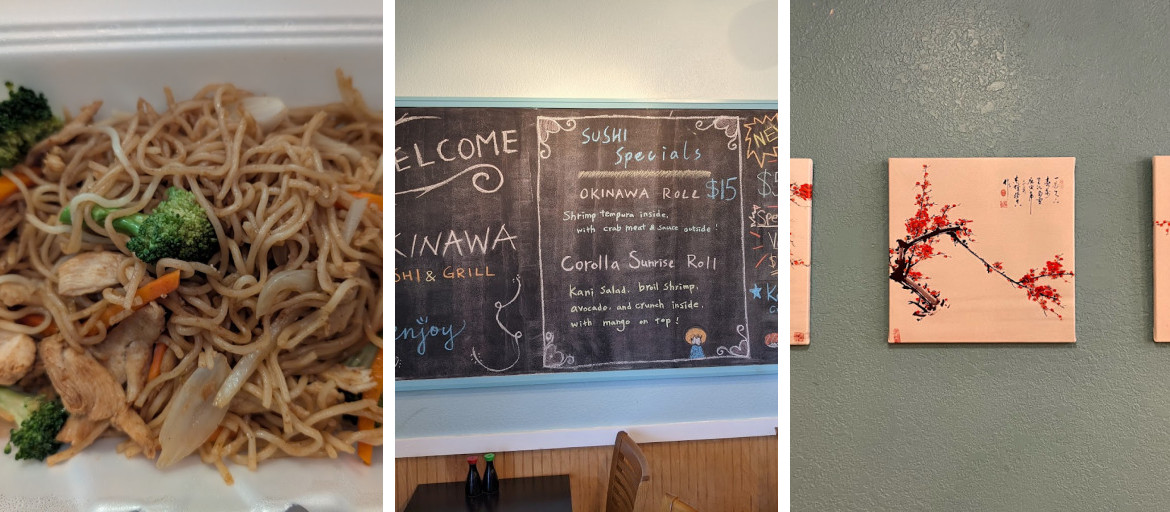 ELCOME
KINAWA
SHI & GRILL
enjoy
SUSHI
Specials
OKINAWA ROLL $15
Shrimp tempura inside,
with crab meat & sauce outside!
Corolla Sunrise Roll
Kani Salad, broil shrimp,
avocado, and crunch inside,
with mango on top!
NE
$5
Spe